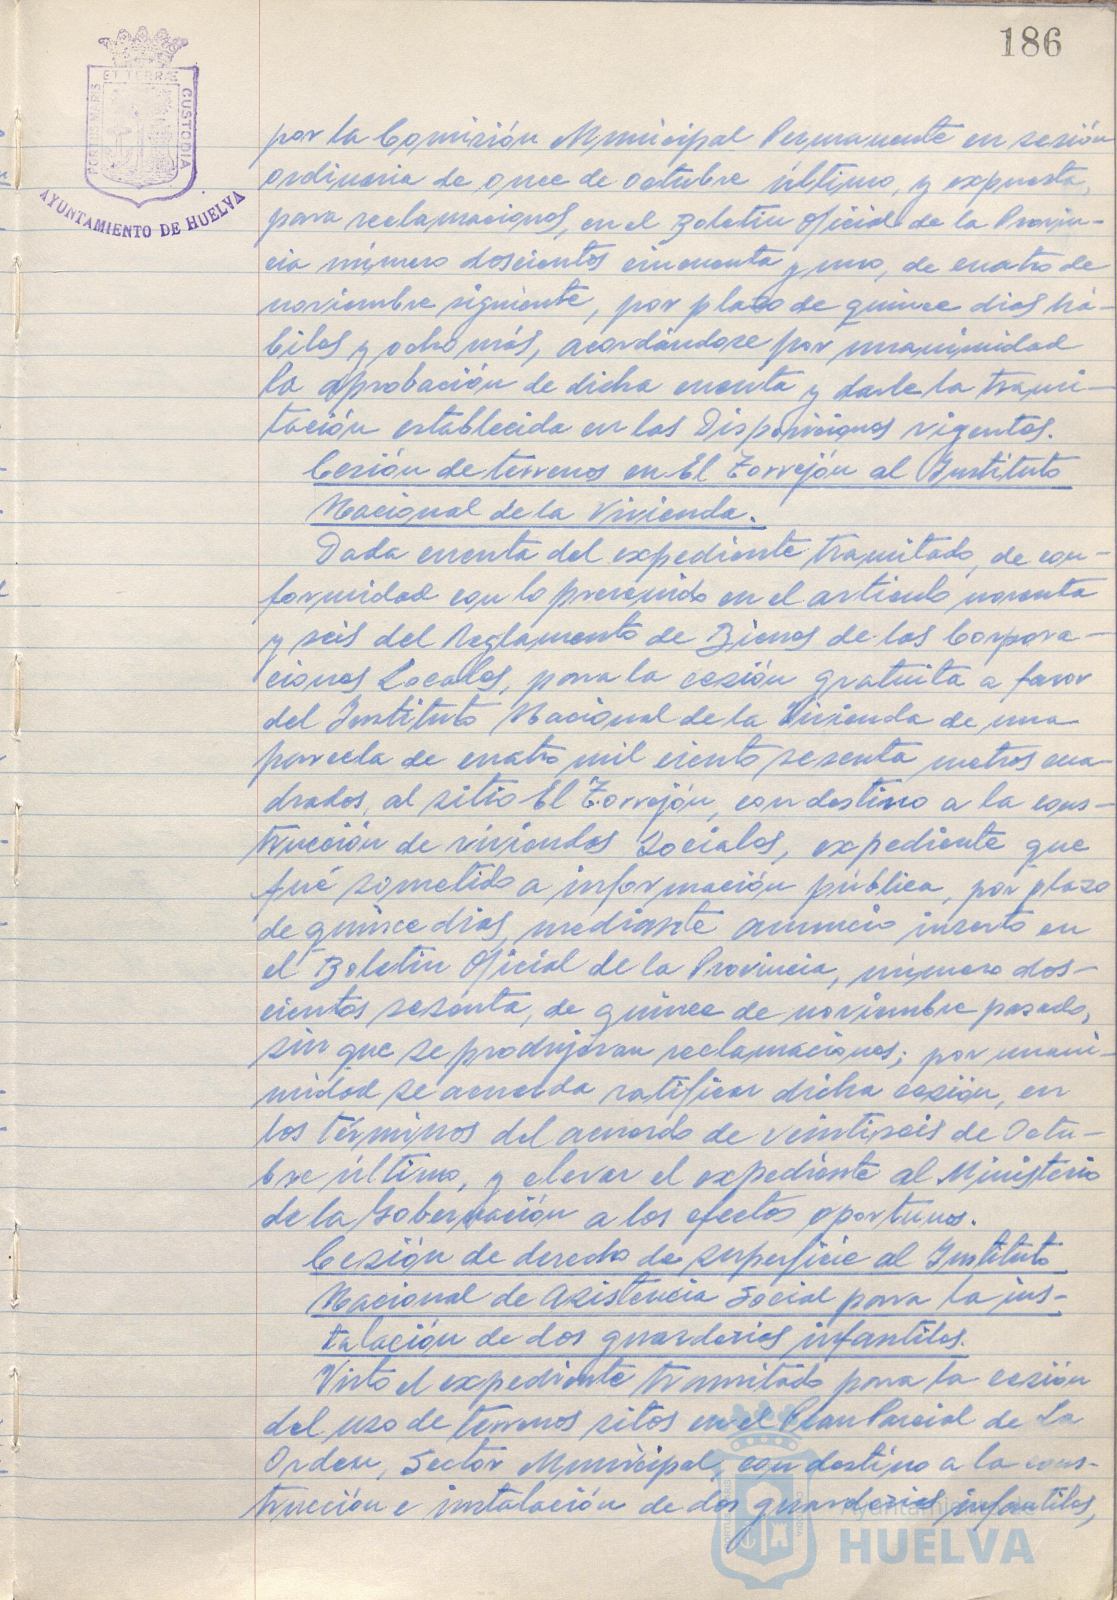 186
PORTUS MARIS
ET TERRÆ
CUSTODIA
AYUNTAMIENTO DE HUELVA
por la Comisión Municipal Permanente en sesión
ordinaria de once de octubre último, y expuesta,
para reclamaciones, en el Boletín Oficial de la Provin-
cia número doscientos cincuenta y uno, de cuatro de
noviembre siguiente, por plazo de quince dias há-
biles y ocho más, acordándose por unanimidad
la aprobación de dicha cuenta y darle la trami-
tación establecida en las Disposiciones vigentes.
Cesión de terrenos en El Torrejón al Instituto
Nacional de la Vivienda.
Dada cuenta del expediente tramitado, de con-
formidad con lo prevenido en el artículo noventa
y seis del Reglamento de Bienes de las Corpora-
ciones Locales, para la cesión gratuita a favor
del Instituto Nacional de la Vivienda de una
parcela de cuatro mil ciento sesenta metros cua-
drados, al sitio El Torrejón, con destino a la cons-
trucción de viviendas Sociales, expediente que
fué sometido a información pública, por plazo
de quince dias, mediante anuncio inserto en
el Boletín Oficial de la Provincia, número dos-
cientos sesenta, de quince de noviembre pasado,
sin que se produjeran reclamaciones; por unani-
midad se acuerda ratificar dicha cesión, en
los términos del acuerdo de veintiseis de Octu-
bre último, y elevar el expediente al Ministerio
de la Gobernación a los efectos oportunos.
Cesión de derecho de superficie al Instituto
Nacional de Asistencia Social para la ins-
talación de dos guarderias infantiles.
Visto el expediente tramitado para la cesión
del uso de terrenos sitos en el Plan Parcial de La
Orden, Sector Municipal, con destino a la cons-
trucción e instalación de dos guarderias infantiles,
Ayuntamiento de
HUELVA